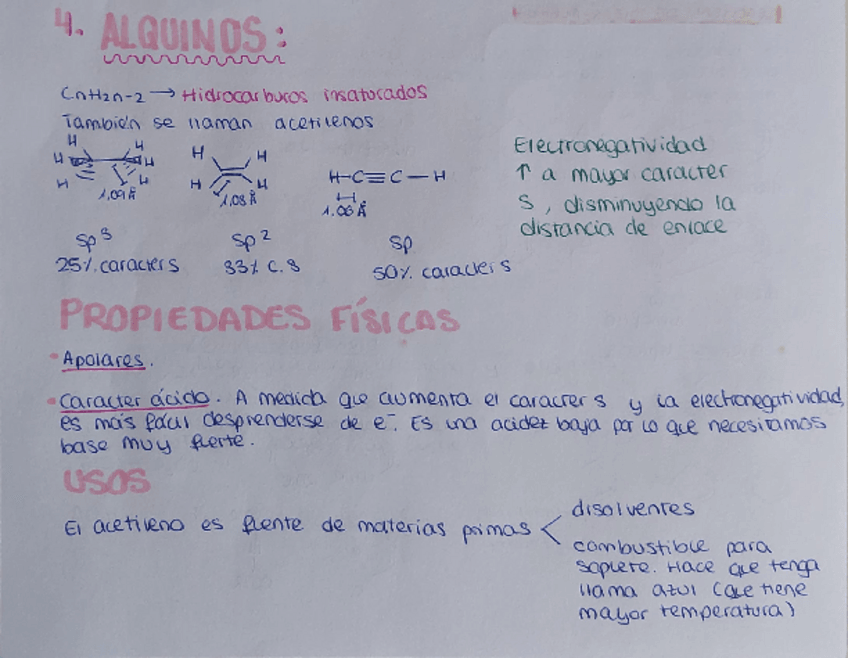 4. ALQUINOS:
CnH2n-2 → Hidrocarburos insaturados
También se llaman acetilenos
H H H H H H
1,09 Å
H H H H
1,08 Å
H-C≡C-H
1.06 Å
Electronegatividad
↑ a mayor caracter
s, disminuyendo la
distancia de enlace
sp3 sp2 sp
25% caracter s 33% c.s 50% caracter s
PROPIEDADES FÍSICAS
• Apolares.
• Caracter ácido. A medida que aumenta el caracter s y la electronegatividad,
es más fácil desprenderse de e-. Es una acidez baja por lo que necesitamos
base muy fuerte.
USOS
El acetileno es fuente de materias primas <
disolventes
combustible para
soplete. Hace que tenga
llama azul (que tiene
mayor temperatura)